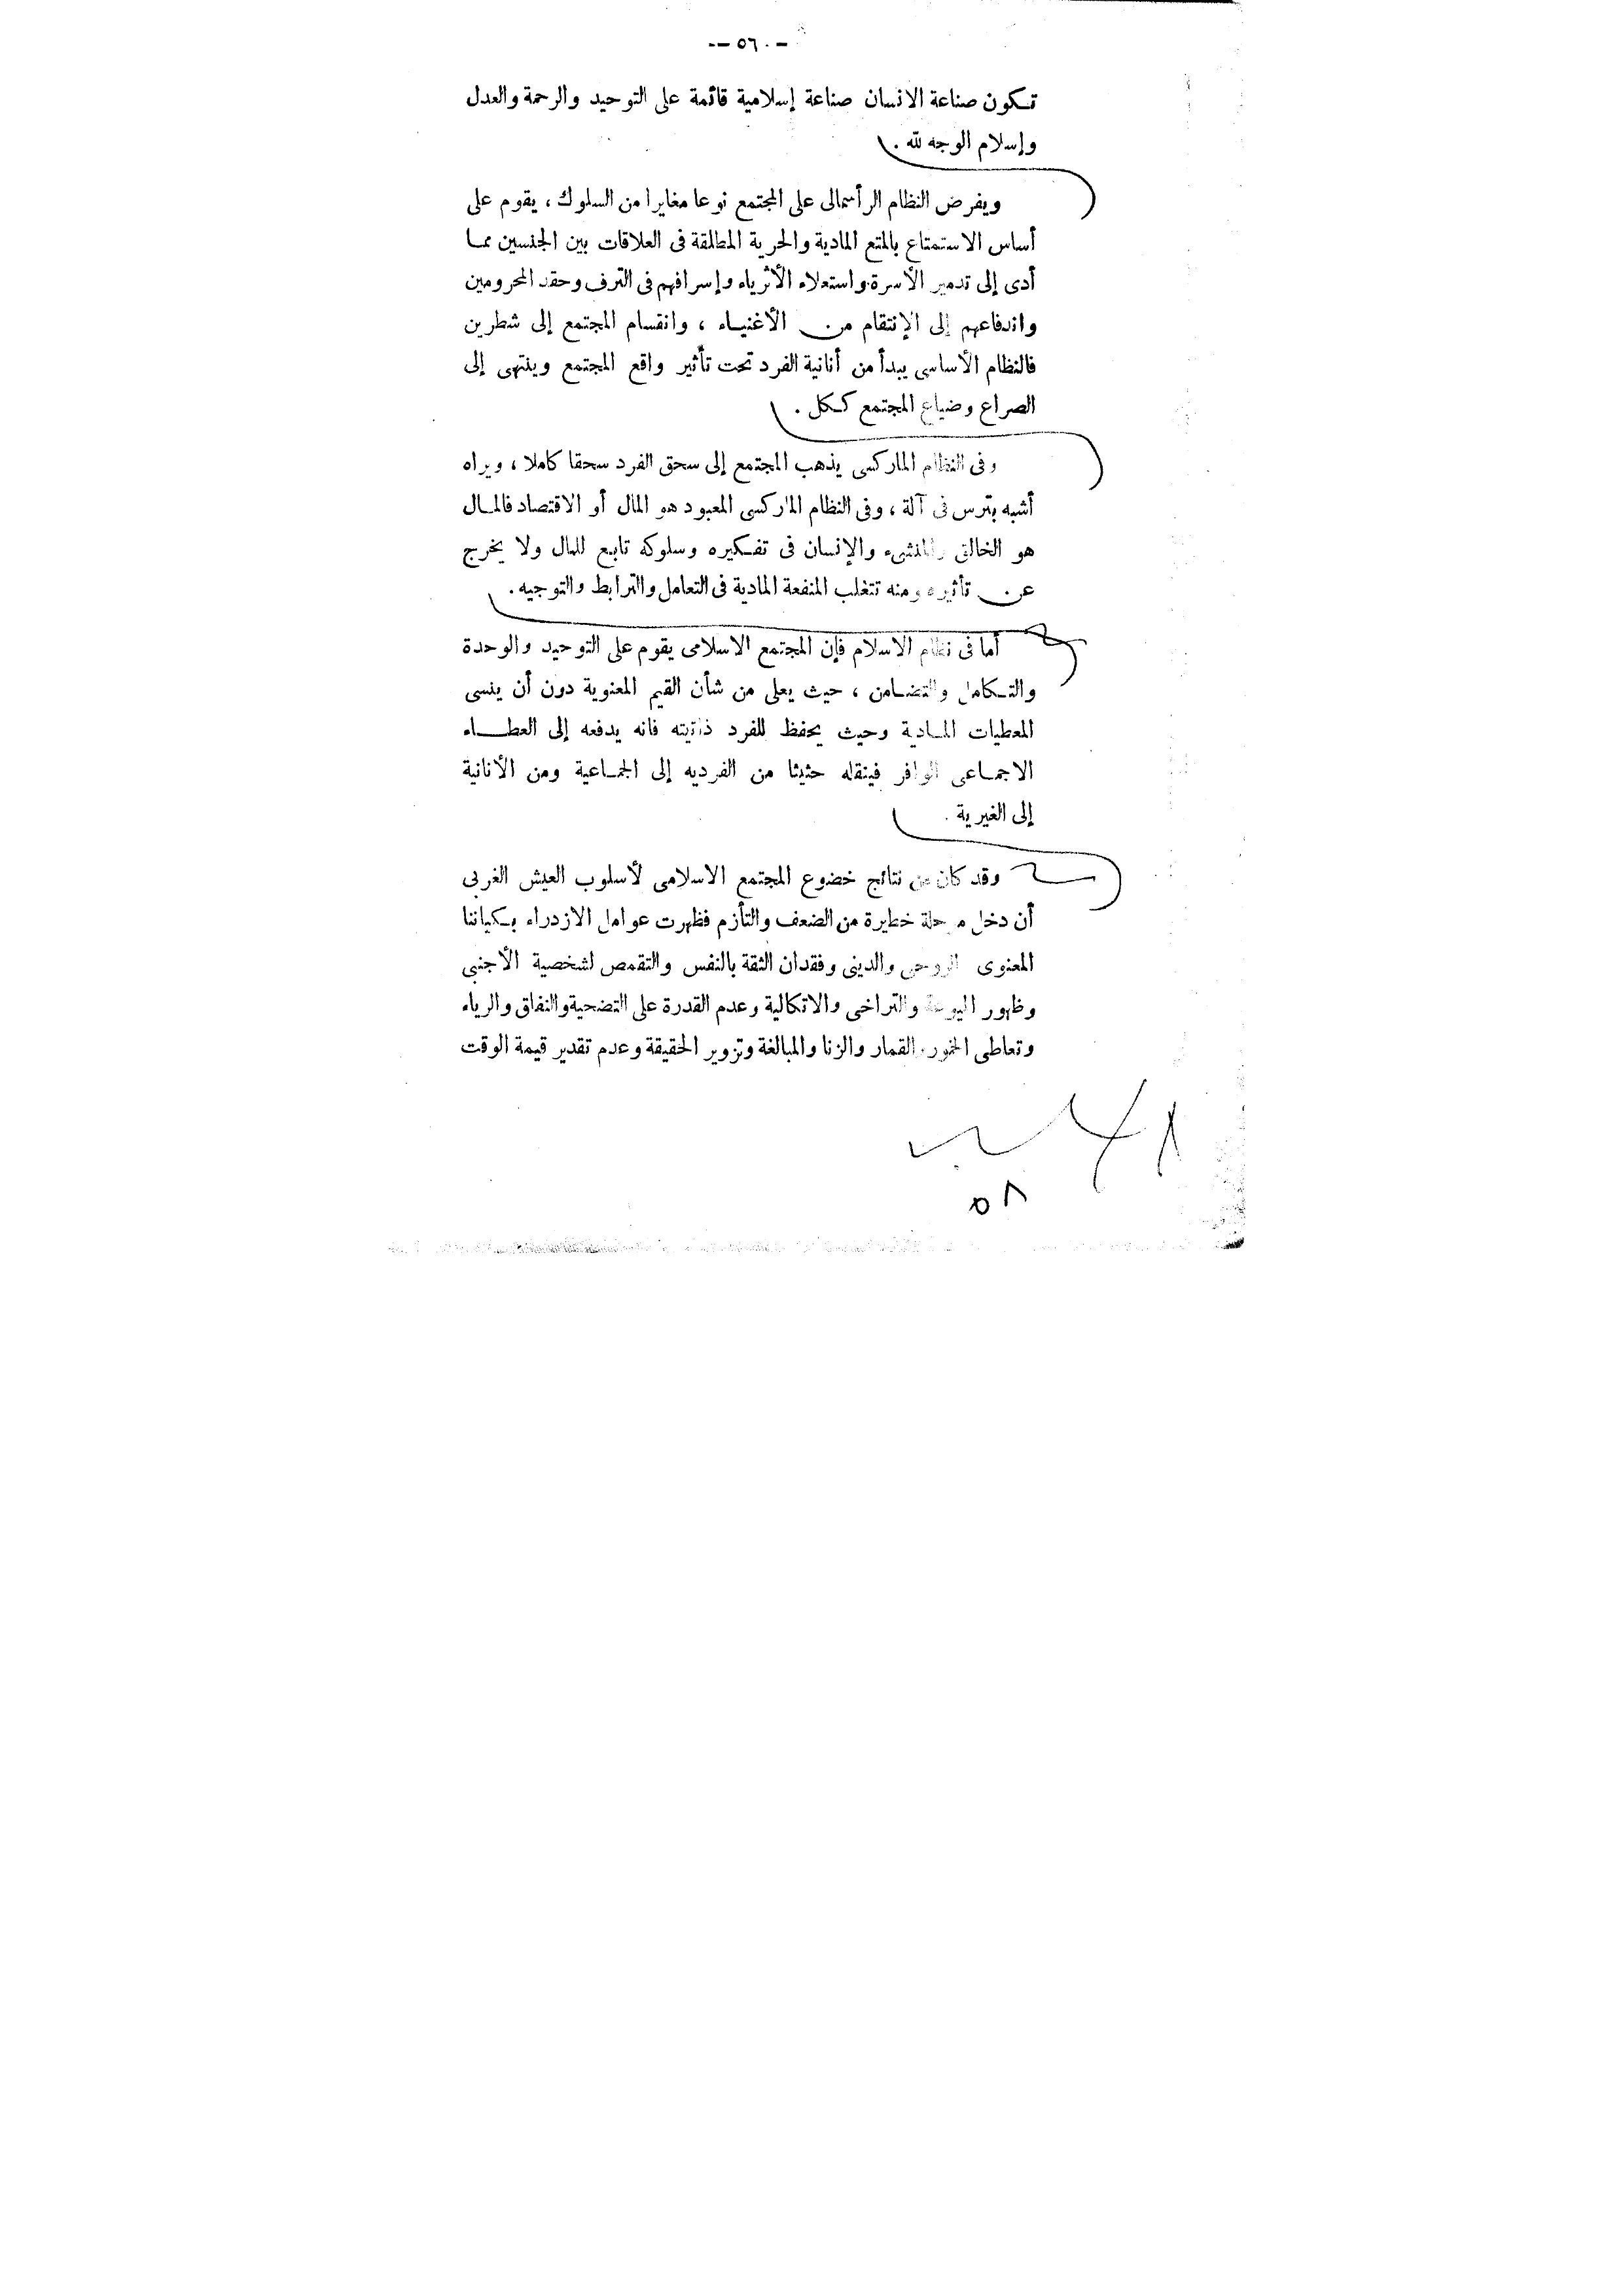 — ٥٦٠ —
تكون صناعة الانسان صناعة إسلامية قائمة على التوحيد والرحمة والعدل
وإسلام الوجه لله .
ويفرض النظام الرأسمالى على المجتمع نوعا مغايرا من السلوك ، يقوم على
أساس الاستمتاع بالمتع المادية والحرية المطلقة فى العلاقات بين الجنسين مما
أدى إلى تدمير الأسرة واستعلاء الأثرياء وإسرافهم فى الترف وحقد المحرومين
واندفاعهم إلى الإنتقام من الأغنياء ، وانقسام المجتمع إلى شطرين
فالنظام الأساسى يبدأ من أنانية الفرد تحت تأثير واقع المجتمع وينتهى إلى
الصراع وضياع المجتمع ككل .
وفى النظام الماركسى يذهب المجتمع إلى سحق الفرد سحقا كاملا ، ويراه
أشبه بترس فى آلة ، وفى النظام الماركسى المعبود هو المال أو الاقتصاد فالمال
هو الخالق والمنشىء والإنسان فى تفكيره وسلوكه تابع للمال ولا يخرج
عن تأثيره ومنه تتغلب المنفعة المادية فى التعامل والترابط والتوجيه .
أما فى نظام الاسلام فإن المجتمع الاسلامى يقوم على التوحيد والوحدة
والتكامل والتضامن ، حيث يعلى من شأن القيم المعنوية دون أن ينسى
المعطيات المادية وحيث يحفظ للفرد ذاتيته فانه يدفعه إلى العطاء
الاجماعى الوافر فينقله حثيثا من الفرديه إلى الجماعية ومن الأنانية
إلى الغيرية .
وقد كان من نتائج خضوع المجتمع الاسلامى لأسلوب العيش الغربى
أن دخل مرحلة خطيرة من الضعف والتأزم فظهرت عوامل الازدراء بكياننا
المعنوى الروحى والدينى وفقدان الثقة بالنفس والتقمص لشخصية الأجنبى
وظهور الميوعة والتراخى والاتكالية وعدم القدرة على التضحية والنفاق والرياء
وتعاطى الخمور والقمار والزنا والمبالغة وتزوير الحقيقة وعدم تقدير قيمة الوقت
٥٨